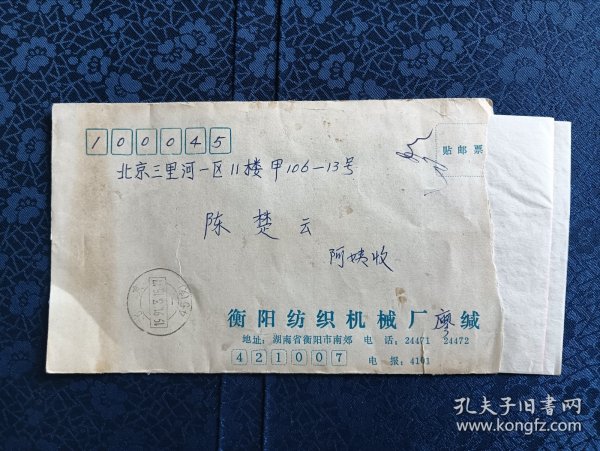 100045
贴邮票
北京三里河一区11楼甲106-13号
陈楚云
阿姨收
衡阳纺织机械厂廖缄
地址:湖南省衡阳市南郊 电话:24471 24472
421007 电报:4101
孔夫子旧书网
www.kongfz.com